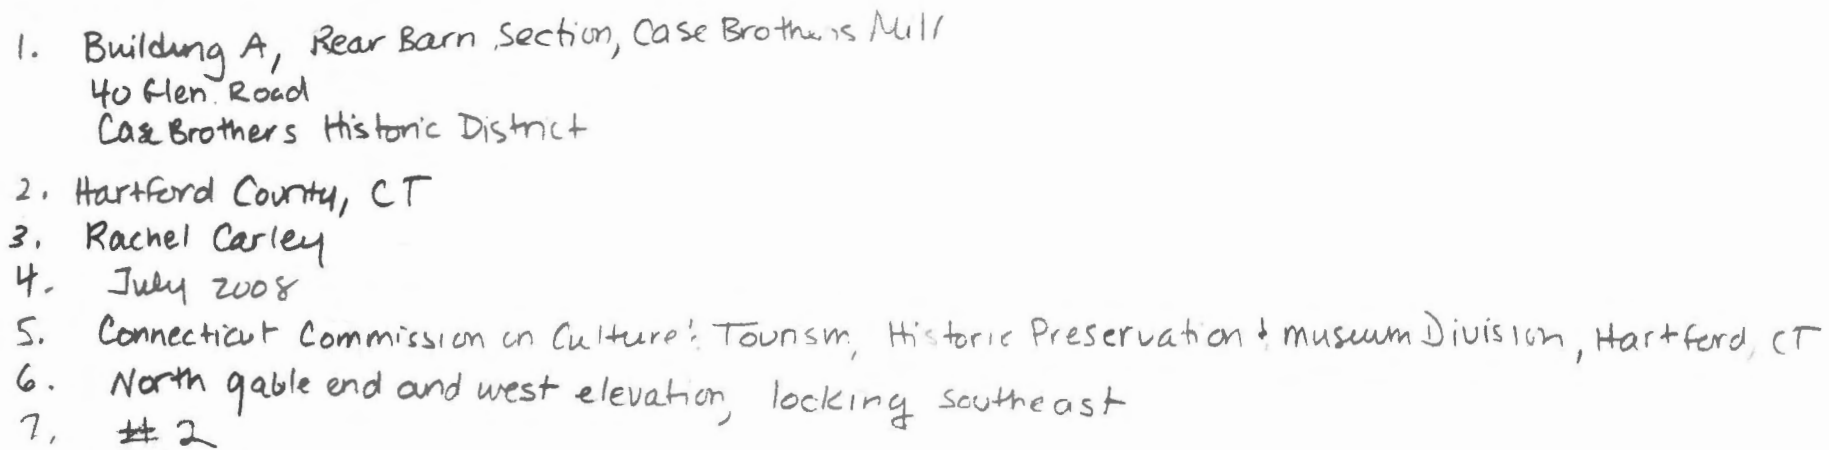 1. Building A, Rear Barn Section, Case Brothers Mill
40 Glen Road
Case Brothers Historic District
2. Hartford County, CT
3. Rachel Carley
4. July 2008
5. Connecticut Commission on Culture & Tourism, Historic Preservation & Museum Division, Hartford, CT
6. North gable end and west elevation, looking southeast
7. # 2